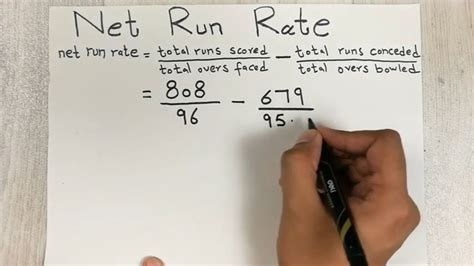 Net Run Rate
net run rate = total runs scored / total overs faced − total runs conceded / total overs bowled
= 808 / 96 − 679 / 95.